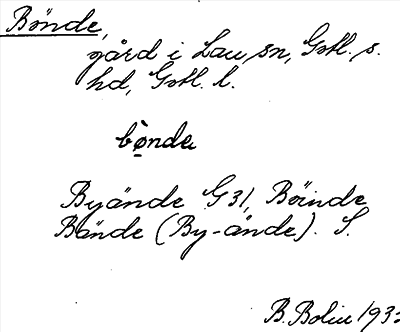 Bönde,
gård i Lau sn, Gotl. s.
hd, Gotl. l.
bò̤nda
Byände G 31, Böinde
Bände (By-ände). S.
B. Bolin 1933